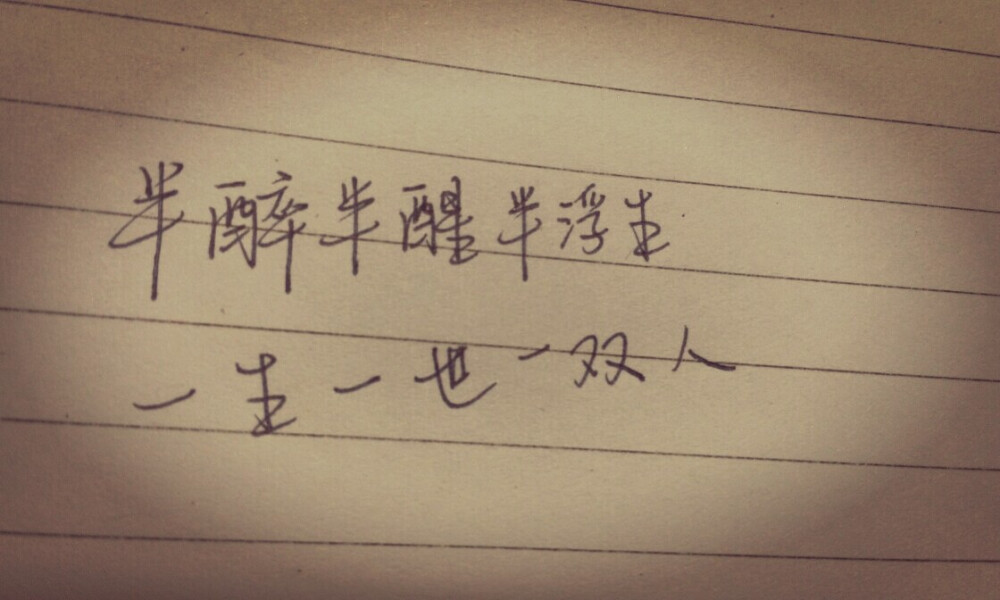 半醉半醒半浮生
一生一世一双人